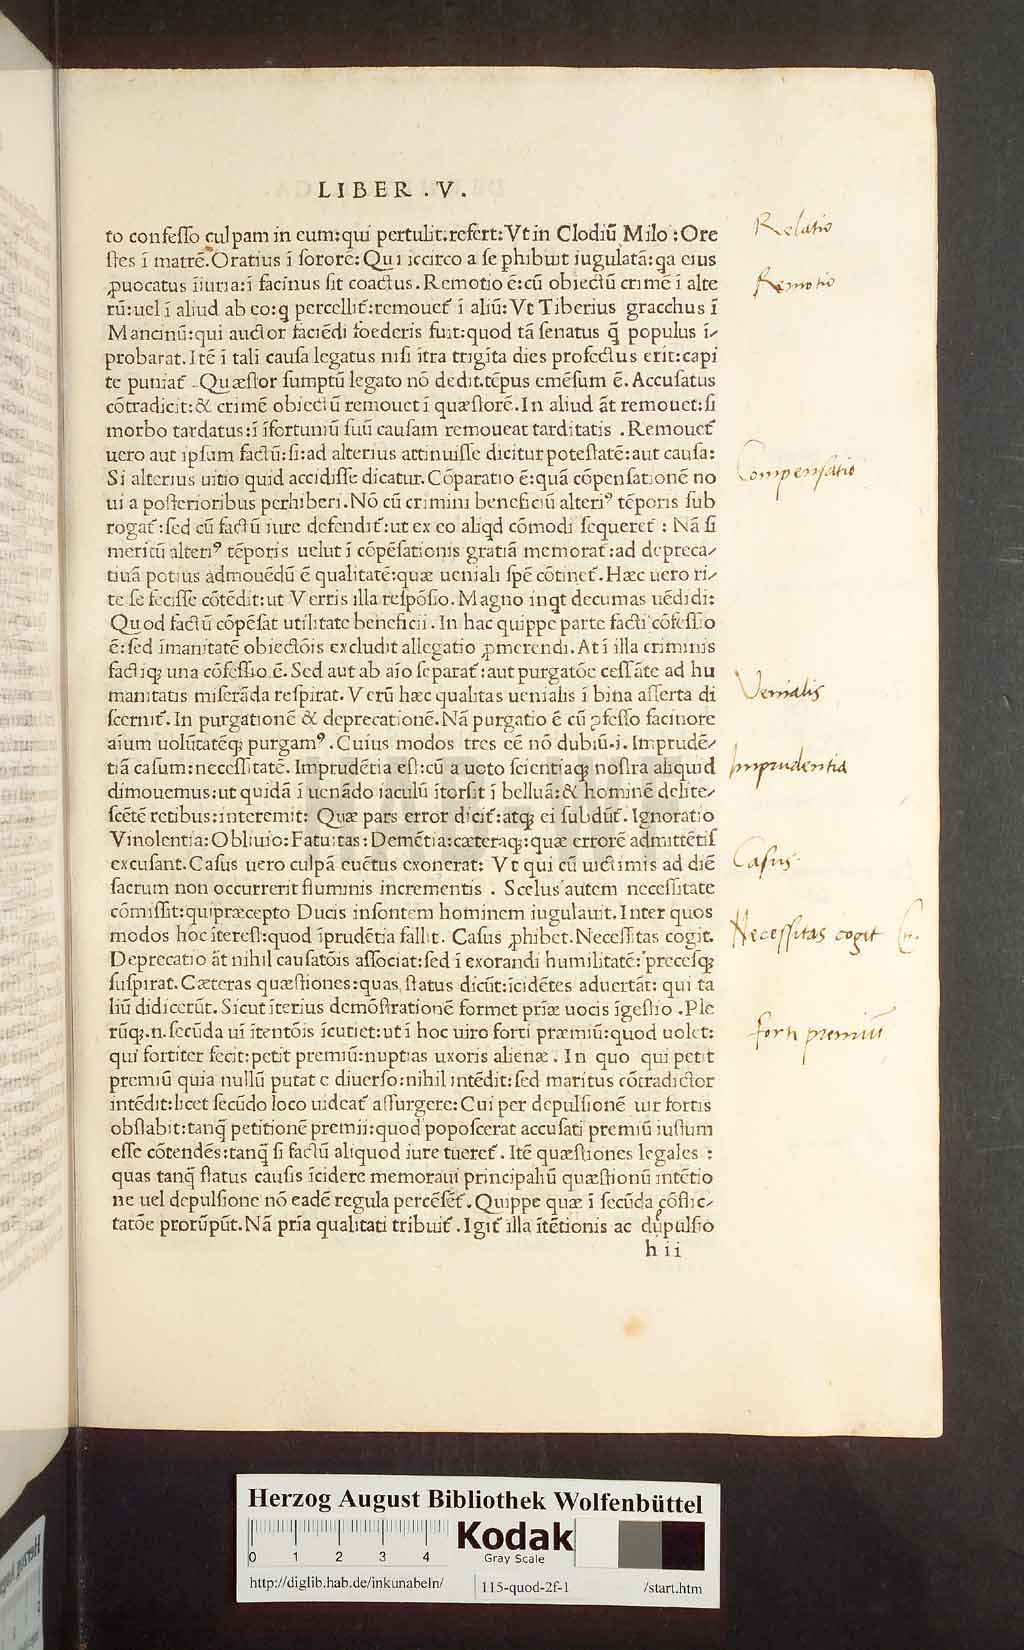 LIBER .V.
to confesso culpam in eum:qui pertulit.refert:Vt in Clodiũ Milo :Ore
stes ĩ matrẽ.Oratius ĩ sororẽ:Qui iccirco a se ꝓhibuit iugulatã:qa eius
ꝓuocatus ĩiuria:ĩ facinus sit coactus.Remotio ẽ:cũ obiectũ crimẽ ĩ alte
rũ:uel ĩ aliud ab eo:q percellit̃:remouet̃ ĩ aliũ:Vt Tiberius gracchus ĩ
Mancinũ:qui auctor faciẽdi foederis fuit:quod tã senatus q̃ populus ĩ-
probarat.Itẽ ĩ tali causa legatus nisi ĩtra trigĩta dies profectus erit:capi
te puniat̃ .Quæstor sumptũ legato nõ dedit.tẽpus emẽsum ẽ.Accusatus
cõtradicit:& crimẽ obiectũ remouet ĩ quæstorẽ.In aliud ãt remouet:si
morbo tardatus:ĩ ĩfortuniũ suũ causam remoueat tarditatis .Remouet̃
uero aut ipsum factũ:si:ad alterius attinuisse dicitur potestatẽ:aut causa:
Si alterius uitio quid accidisse dicatur.Cõparatio ẽ:quã cõpensationẽ no
ui a posterioribus perhiberi.Nõ cũ crimini beneficiũ alteriꝰ tẽporis sub
rogat̃:sed cũ factũ iure defendit̃:ut ex eo aliqd cõmodi sequeret̃ : Nã si
meritũ alteriꝰ tẽporis uelut ĩ cõpẽsationis gratiã memorat̃:ad depreca-
tiuã potius admouẽdũ ẽ qualitatẽ:quæ ueniali spẽ cõtinet̃.Hæc uero ri-
te se fecisse cõtẽdit:ut Verris illa respõsio.Magno inqt decumas uẽdidi:
Quod factũ cõpẽsat utilitate beneficii.In hac quippe parte facti cõfessio
ẽ:sed ĩmanitatẽ obiectõis excludit allegatio ꝓmerendi.At ĩ illa criminis
factiqꝫ una cõfessio ẽ.Sed aut ab aĩo separat̃:aut purgatõe cessãte ad hu
manitatis miserãda respirat.Verũ hæc qualitas uenialis ĩ bina asserta di
scernit̃.In purgationẽ & deprecationẽ.Nã purgatio ẽ cũ ꝯfesso facinore
aĩum uolũtatẽqꝫ purgamꝰ.Cuius modos tres eẽ nõ dubiũ.i.Imprudẽ-
tiã casum:necessitatẽ.Imprudẽtia est:cũ a uoto scientiaqꝫ nostra aliquid
dimouemus:ut quidã ĩ uenãdo iaculũ ĩtorsit ĩ belluã:& hominẽ delite-
scẽtẽ retibus:interemit: Quæ pars error dicit̃:atqꝫ ei subdũt̃.Ignoratio
Vinolentia:Obliuio:Fatuitas:Demẽtia:cæteraqꝫ:quæ errorẽ admittẽtis
excusant.Casus uero culpã euẽtus exonerat: Vt qui cũ uictimis ad diẽ
sacrum non occurrerit fluminis incrementis . Scelus autem necessitate
cõmissit:qui præcepto Ducis insontem hominem iugulauit.Inter quos
modos hoc ĩterest:quod ĩprudẽtia fallit. Casus ꝓhibet.Necessitas cogit.
Deprecatio ãt nihil causatõis associat:sed ĩ exorandi humilitatẽ:precesqꝫ
suspirat.Cæteras quæstiones:quas status dicũt:ĩcidẽtes aduertãt: qui ta
liũ didicerũt.Sicut ĩterius demõstrationẽ formet priæ uocis ĩgestio .Ple
rũqꝫ.n.secũda uĩ ĩtentõis ĩcutiet:ut ĩ hoc uiro forti præmiũ:quod uolet:
qui fortiter fecit:petit premiũ:nuptias uxoris alienæ . In quo qui petit
premiũ quia nullũ putat e diuerso:nihil intẽdit:sed maritus cõtradictor
intẽdit:licet secũdo loco uideat̃ assurgere:Cui per depulsionẽ uir fortis
obstabit:tanq̃ petitionẽ premii:quod poposcerat accusati premiũ iustum
esse cõtendẽs:tanq̃ si factũ aliquod iure tueret̃ . Itẽ quæstiones legales :
quas tanq̃ status causis ĩcidere memoraui principaliũ quæstionũ intẽtio
ne uel depulsione nõ eadẽ regula percẽsẽt̃.Quippe quæ ĩ secũda cõflic-
tatõe prorũpũt.Nã pria qualitati tribuit̃ .Igit̃ illa ĩtẽtionis ac depulsio
h ii
Relatio
Remotio
Compensatio
Venialis
Imprudentia
Casus
Necessitas cogit
forti premiũ
HAB-WF
Herzog August Bibliothek Wolfenbüttel
0 1 2 3 4
Kodak
Gray Scale
http://diglib.hab.de/inkunabeln/
115-quod-2f-1
/start.htm